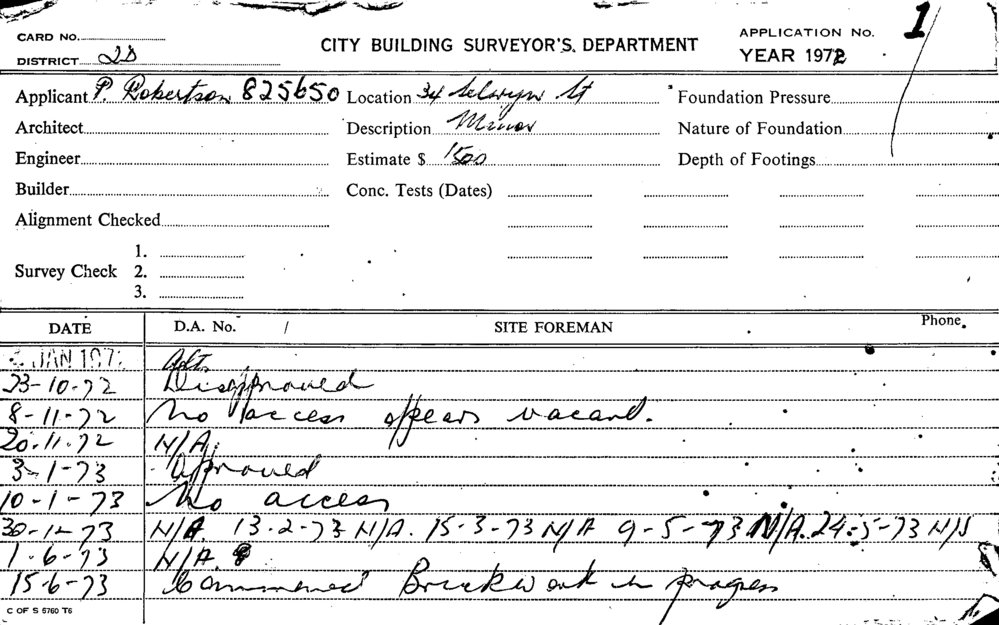 CARD NO.
CITY BUILDING SURVEYOR'S DEPARTMENT
APPLICATION No. 1/
DISTRICT 2D
YEAR 1972
Applicant P. Robertson 825650 Location 34 Selwyn St Foundation Pressure
Architect Description Minor Nature of Foundation
Engineer Estimate $ 1500 Depth of Footings
Builder Conc. Tests (Dates)
Alignment Checked
1.
Survey Check 2.
3.
DATE D.A. No. / SITE FOREMAN Phone
JAN 197 Alts.
23-10-72 Disapproved
8-11-72 No access appears vacant.
20.11.72 N/A.
3-1-73 Approved
10-1-73 No access
N/A. 13-2-73 N/A. 15-3-73 N/A 9-5-73 N/A. 24-5-73 N/S
1-6-73 N/A.
15-6-73 Commenced Brickwork in progress
C OF S 5760 T6